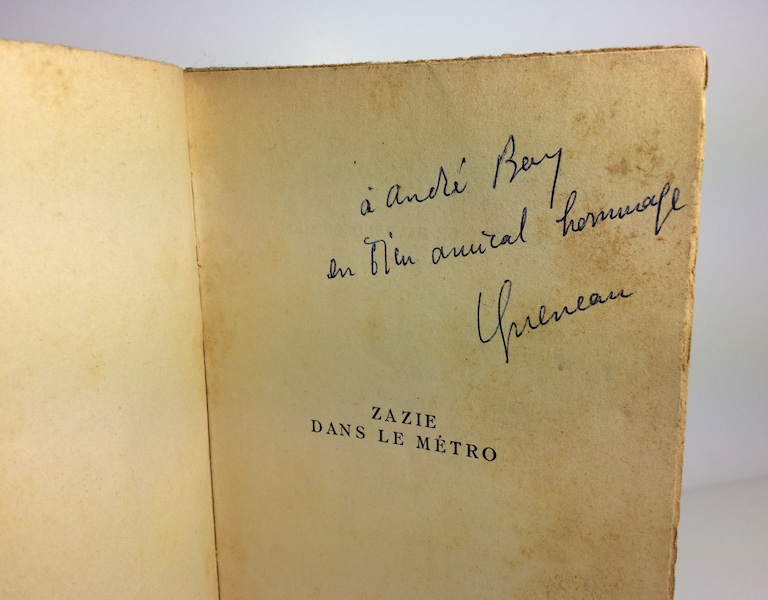 à André Bay
en bien amical hommage
Queneau
ZAZIE
DANS LE MÉTRO